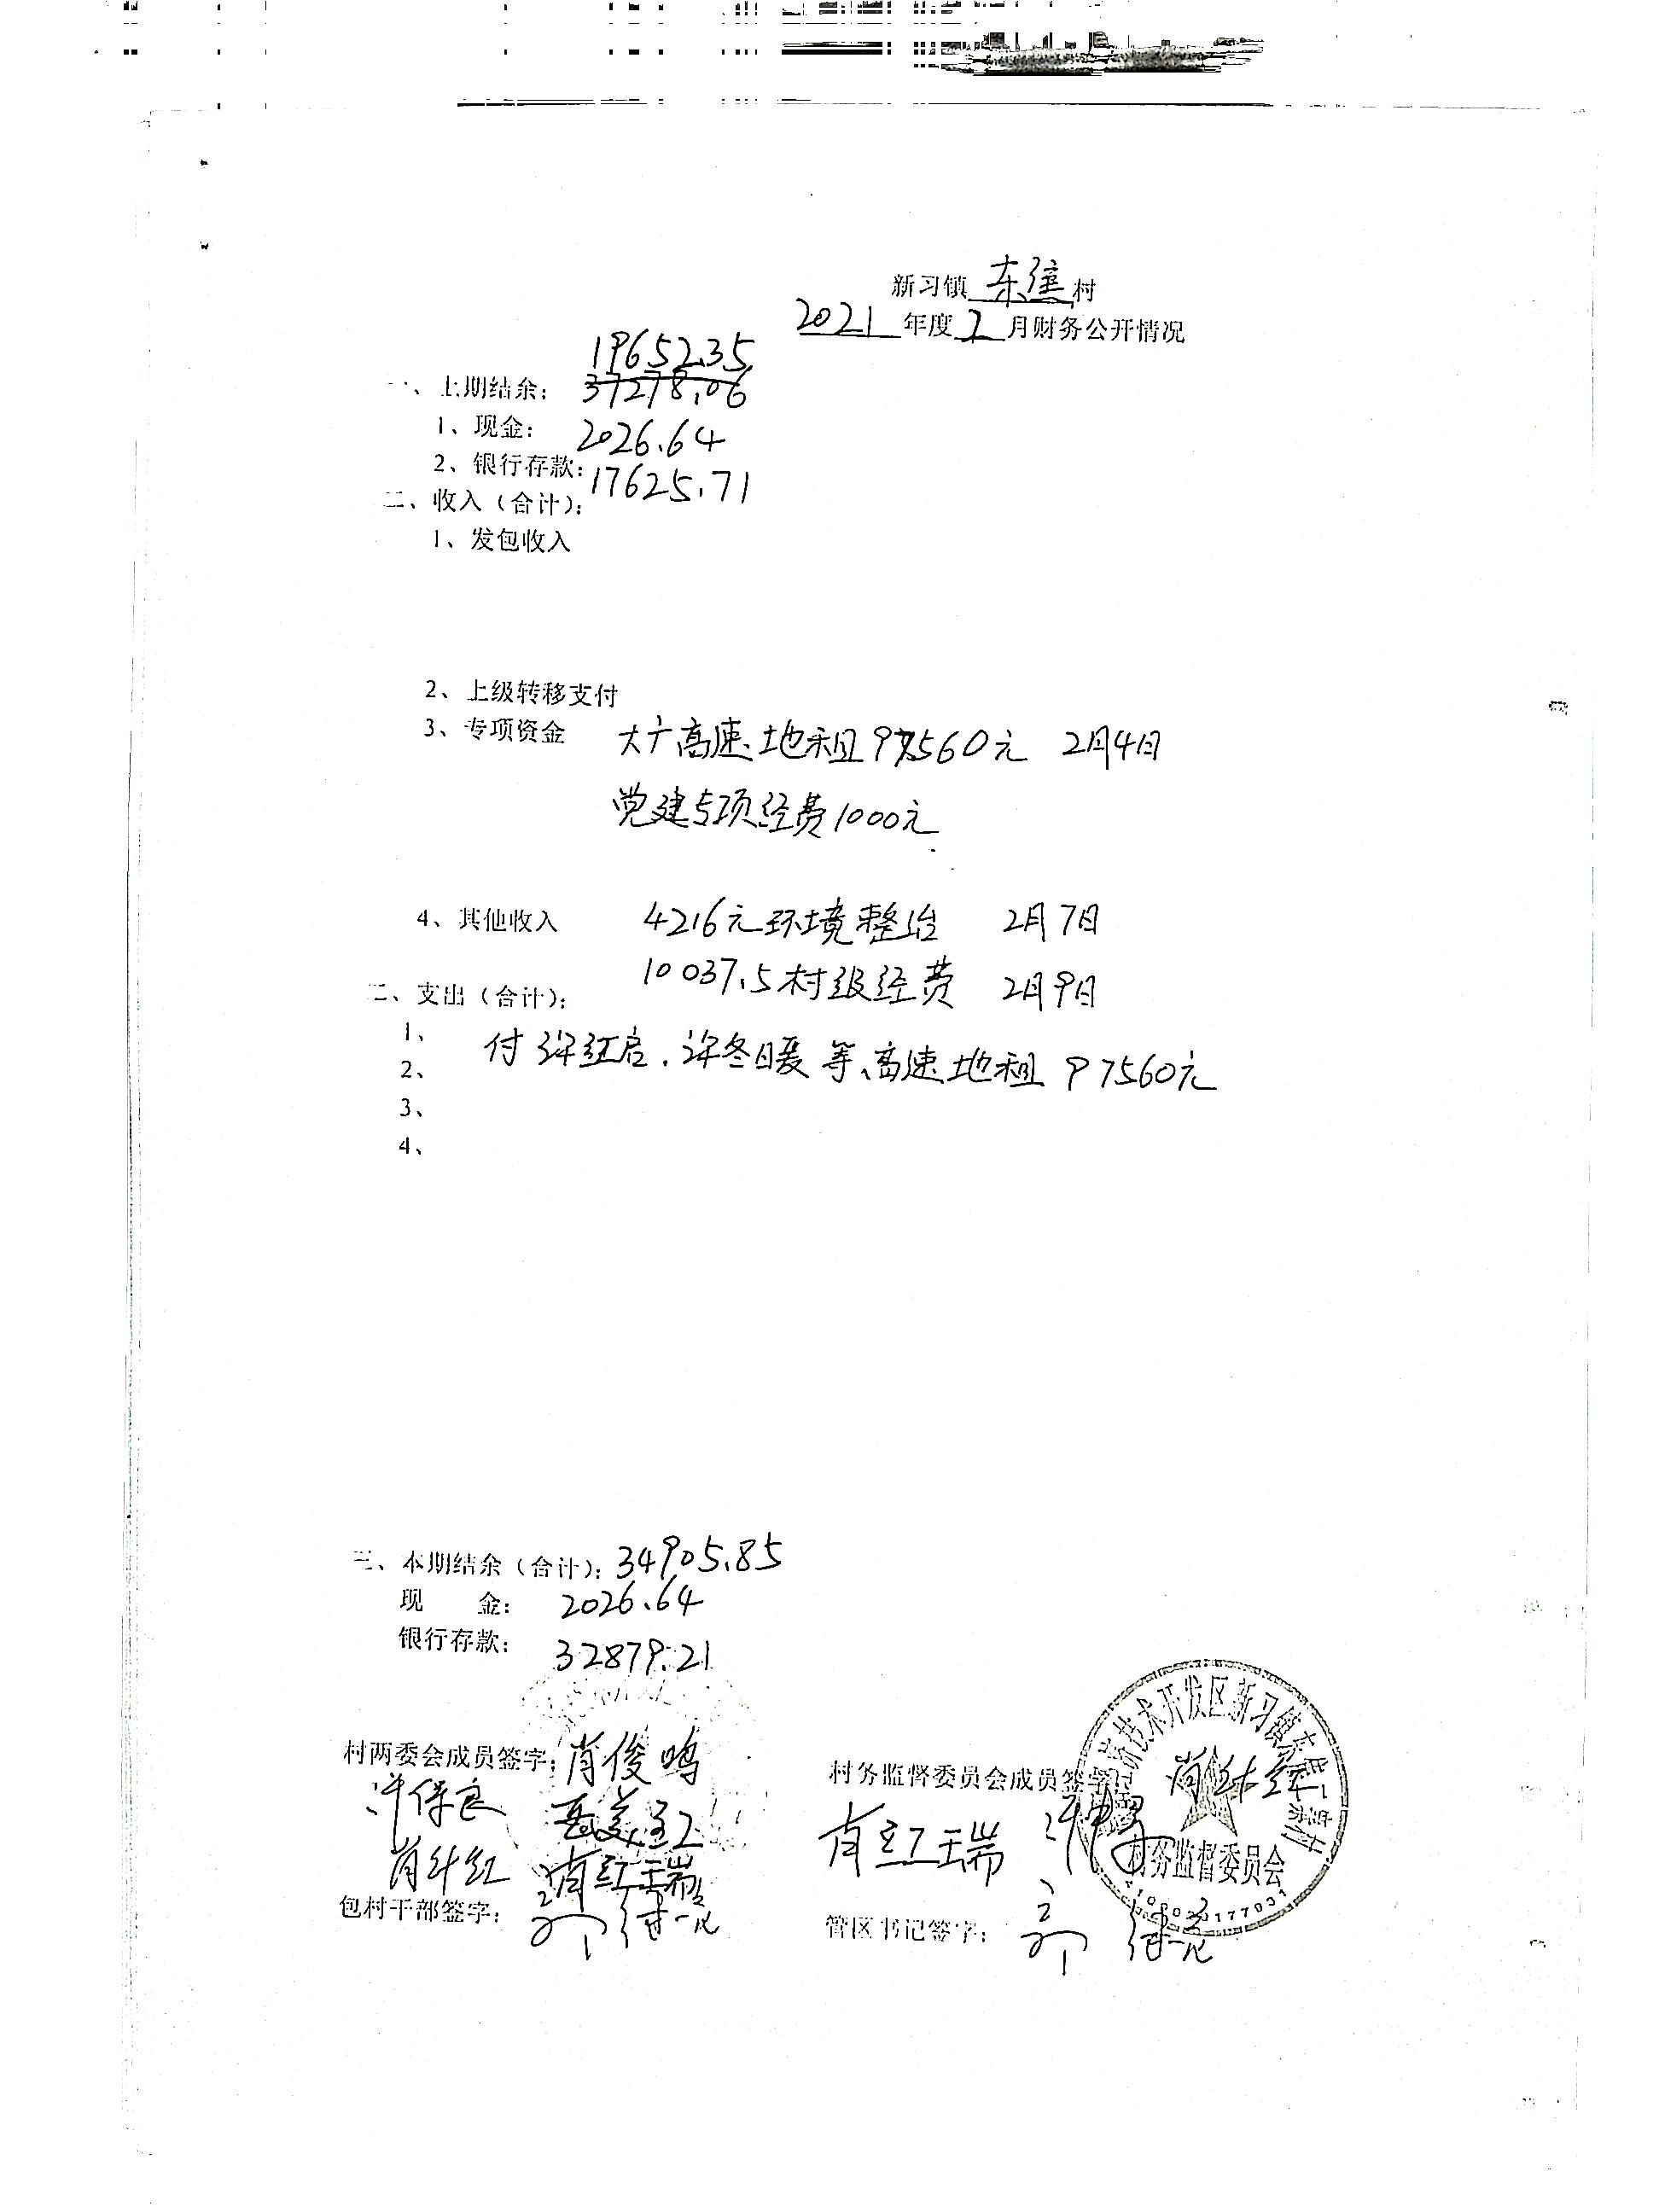 新习镇 东 村
2021 年度 2 月财务公开情况
19652.35
一、上期结余： 37278.06
1、现金： 2026.64
2、银行存款：17625.71
二、收入（合计）：
1、发包收入
2、上级转移支付
3、专项资金 大广高速地租97560元 2月4日
党建专项经费1000元
4、其他收入 4216元环境整治 2月7日
10037.5村级经费 2月9日
二、支出（合计）：
1、 付许红启、许冬暖等高速地租97560元
2、
3、
4、
三、本期结余（合计）：34905.85
现 金： 2026.64
银行存款： 32879.21
村两委会成员签字：肖俊鸣
许保良 岳美红
肖红瑞
包村干部签字：
村务监督委员会成员签字：
肖红瑞
管区书记签字：
技术开发区新习镇东
村务监督委员会